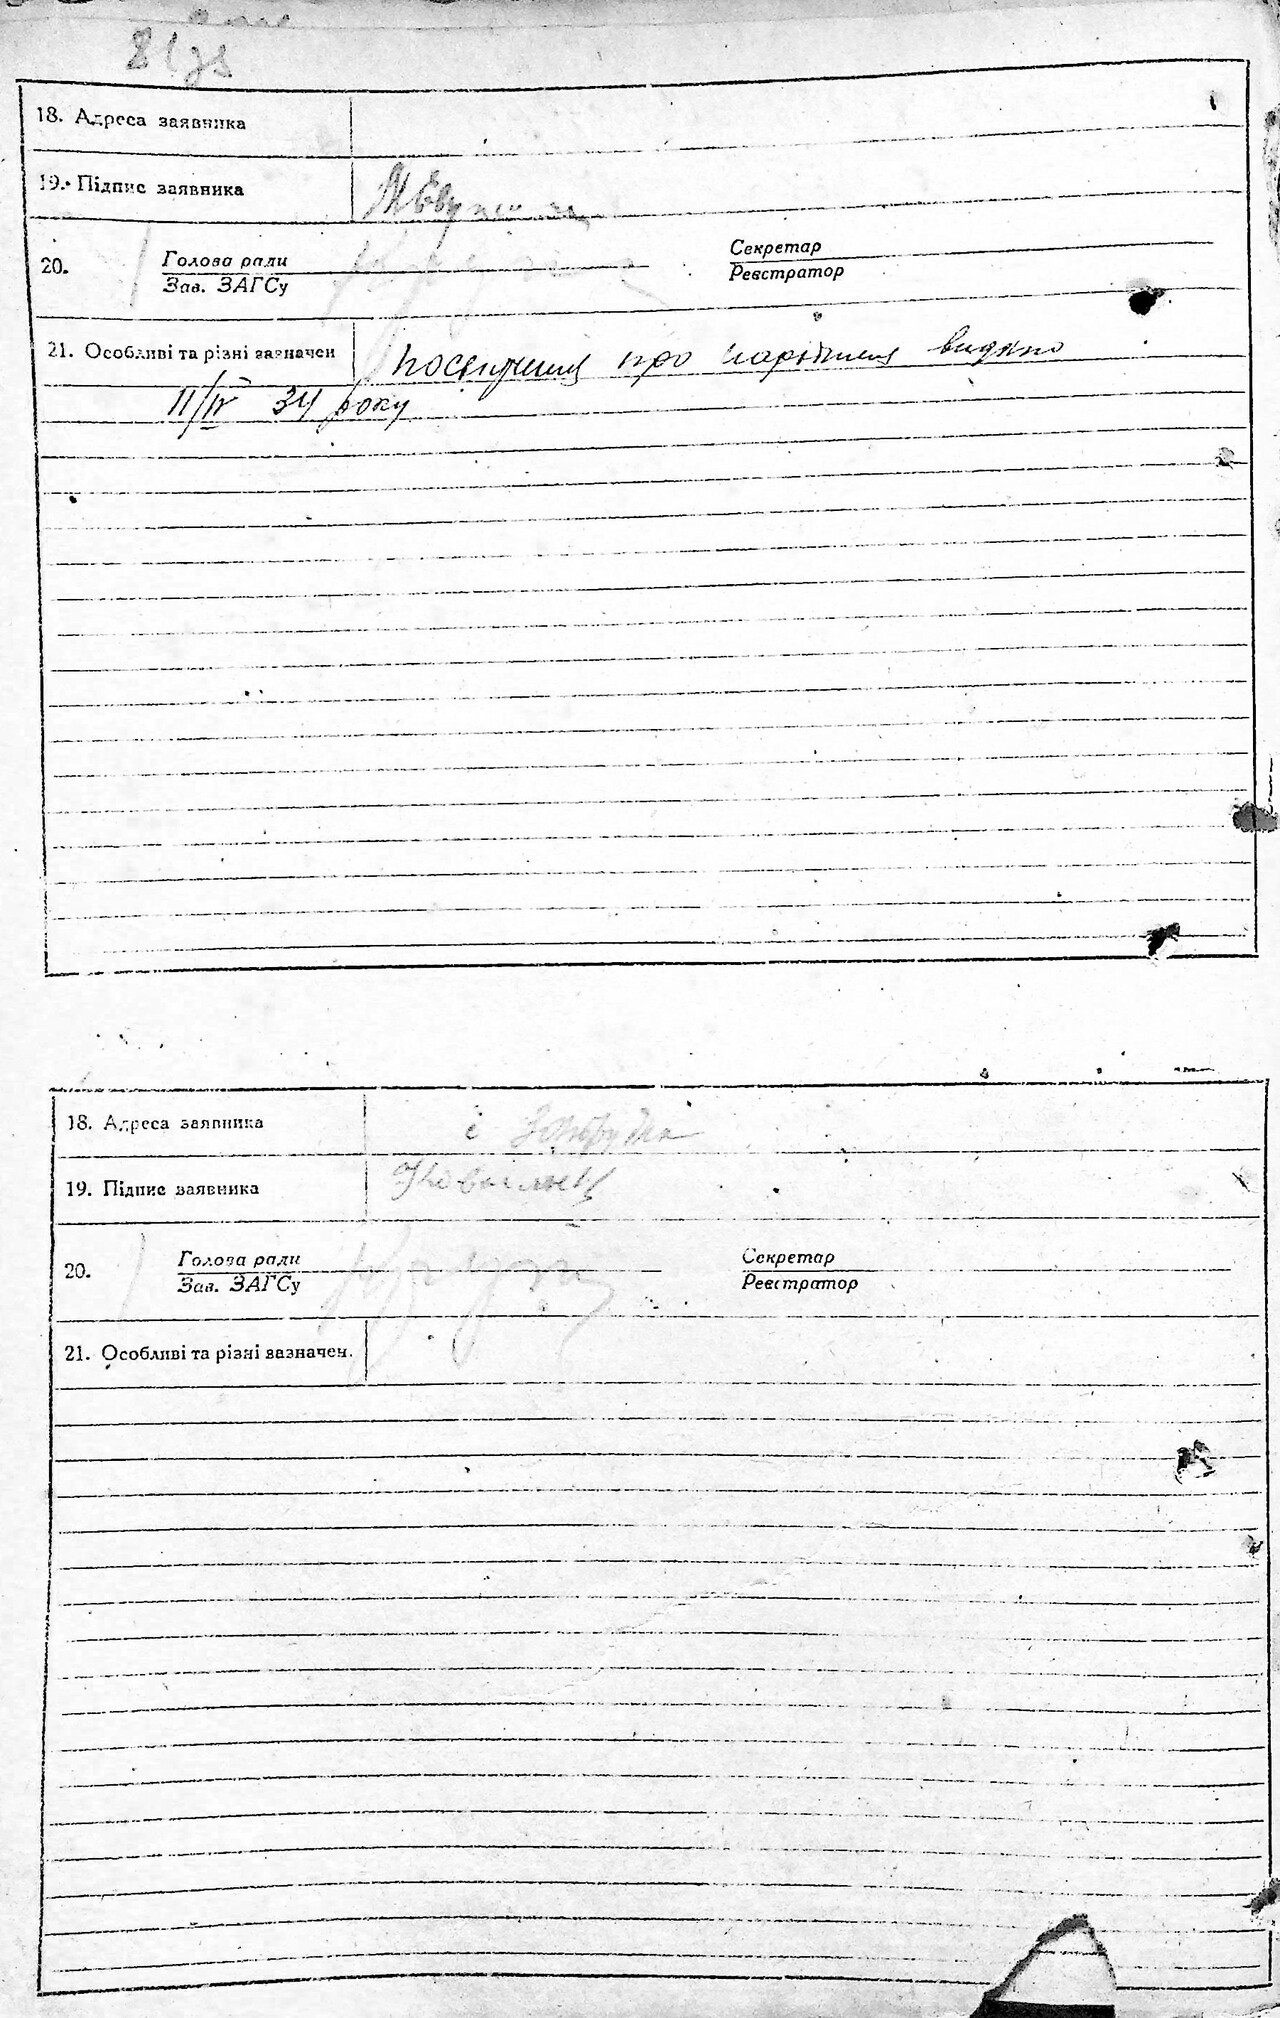 18. Адреса заявника
19. Підпис заявника
20. Голова ради Секретар
Зав. ЗАГСу Реєстратор
21. Особливі та різні зазначен посвідчення про народження видано
11/IV 34 року
18. Адреса заявника
19. Підпис заявника
20. Голова ради Секретар
Зав. ЗАГСу Реєстратор
21. Особливі та різні зазначен.